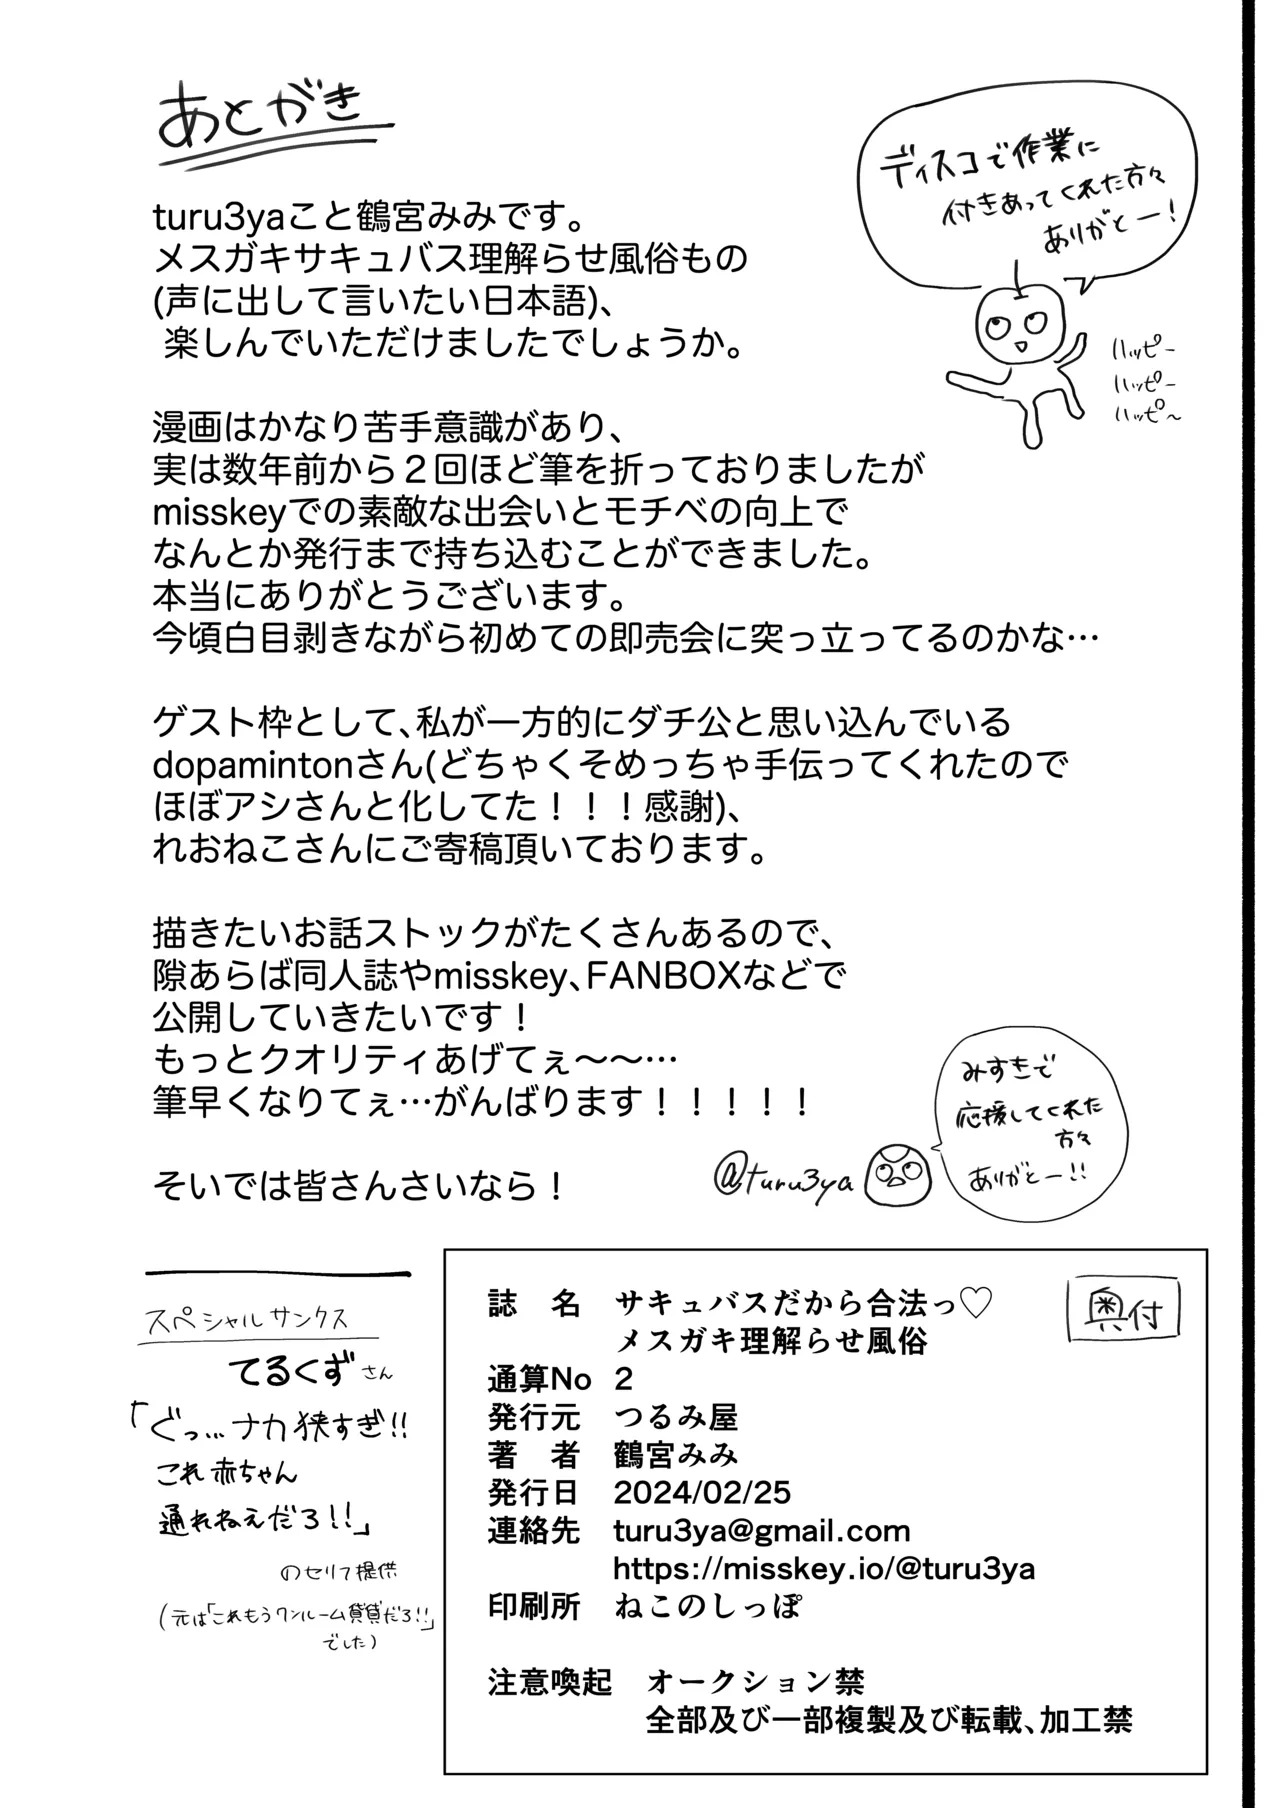 あとがき
turu3yaこと鶴宮みみです。
メスガキサキュバス理解らせ風俗もの
(声に出して言いたい日本語)、
楽しんでいただけましたでしょうか。
漫画はかなり苦手意識があり、
実は数年前から２回ほど筆を折っておりましたが
misskeyでの素敵な出会いとモチベの向上で
なんとか発行まで持ち込むことができました。
本当にありがとうございます。
今頃白目剥きながら初めての即売会に突っ立ってるのかな…
ゲスト枠として、私が一方的にダチ公と思い込んでいる
dopamintonさん(どちゃくそめっちゃ手伝ってくれたので
ほぼアシさんと化してた！！！感謝)、
れおねこさんにご寄稿頂いております。
描きたいお話ストックがたくさんあるので、
隙あらば同人誌やmisskey、FANBOXなどで
公開していきたいです！
もっとクオリティあげてぇ〜〜…
筆早くなりてぇ…がんばります！！！！！
そいでは皆さんさいなら！
ディスコで作業に
付きあってくれた方々
ありがとー!
ハッピー
ハッピー
ハッピ〜
@turu3ya
みすきで
応援してくれた
方々
ありがとー!!
スペシャルサンクス
てるくずさん
「ぐっ...ナカ狭すぎ!!
これ赤ちゃん
通れねえだろ!!」
のセリフ提供
(元は「これもうワンルーム賃貸だろ!!」
でした)
奥付
誌　名　サキュバスだから合法っ♡
メスガキ理解らせ風俗
通算No　2
発行元　つるみ屋
著　者　鶴宮みみ
発行日　2024/02/25
連絡先　turu3ya@gmail.com
https://misskey.io/@turu3ya
印刷所　ねこのしっぽ
注意喚起　オークション禁
全部及び一部複製及び転載、加工禁